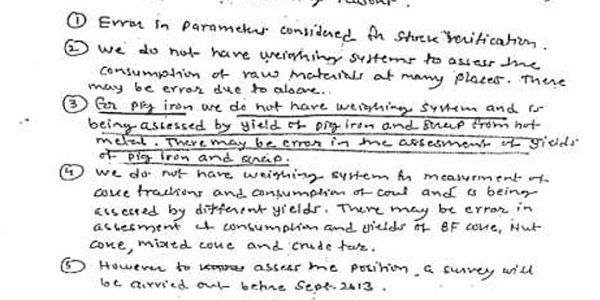 ① Error in Parameters considered for stock verification.
② We do not have weighing systems to assess the
consumption of raw materials at many places. There
may be error due to above..
③ For pig iron we do not have weighing system and is
being assessed by yield of pig iron and scrap from hot
metal. There may be error in the assesment of yields
of pig iron and scrap.
④ we do not have weighing system for measurment of
coke fractions and consumption of coal and is being
assessed by different yields. There may be error in
assesment of consumption and yields of BF coke, Nut
coke, mixed coke and crude tar.
⑤ However to assess the position, a survey will
be carried out before Sept. 2013.